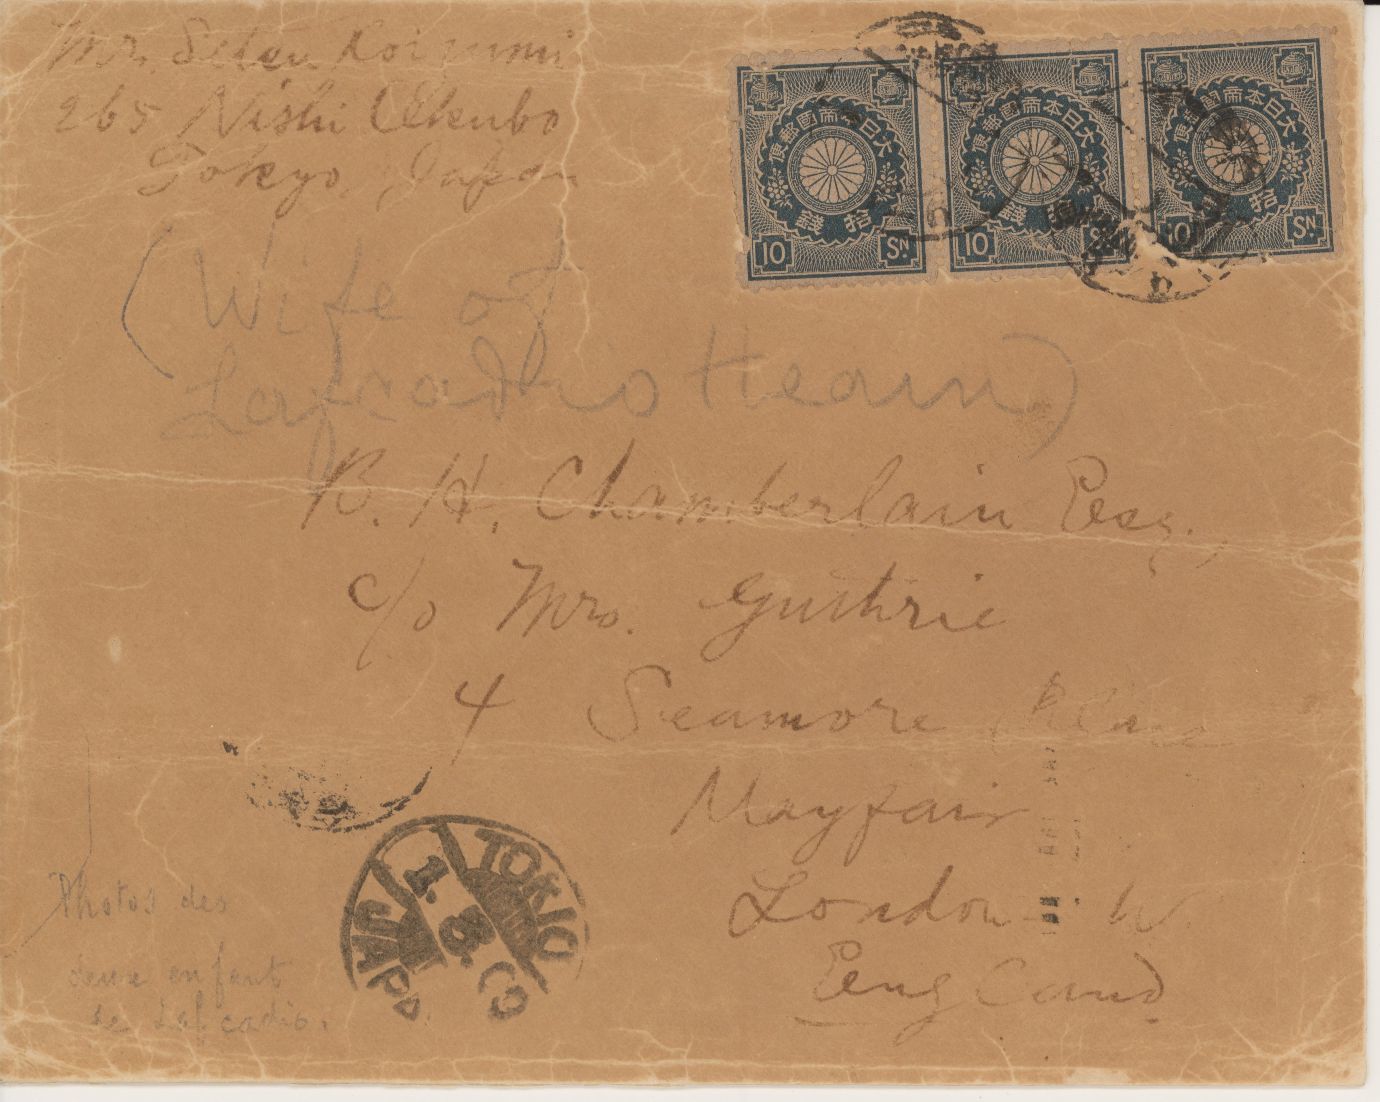 Mr. Setsu Koizumi
265 Nishi Okubo
Tokyo, Japan
大日本帝國郵便
拾錢
10 Sn.
大日本帝國郵便
拾錢
10 S
大日本帝國郵便
拾
10 Sn.
(Wife of
Lafcadio Hearn)
B. H. Chamberlain Esq.,
c/o Mrs. Guthrie
4 Seamore Place
Mayfair
London W.
England
TOKIO
1. 8. 09
JAPAN
Photos des
deux enfant
de Lafcadio.